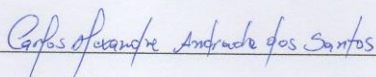 Carlos Alexandre Andrade dos Santos